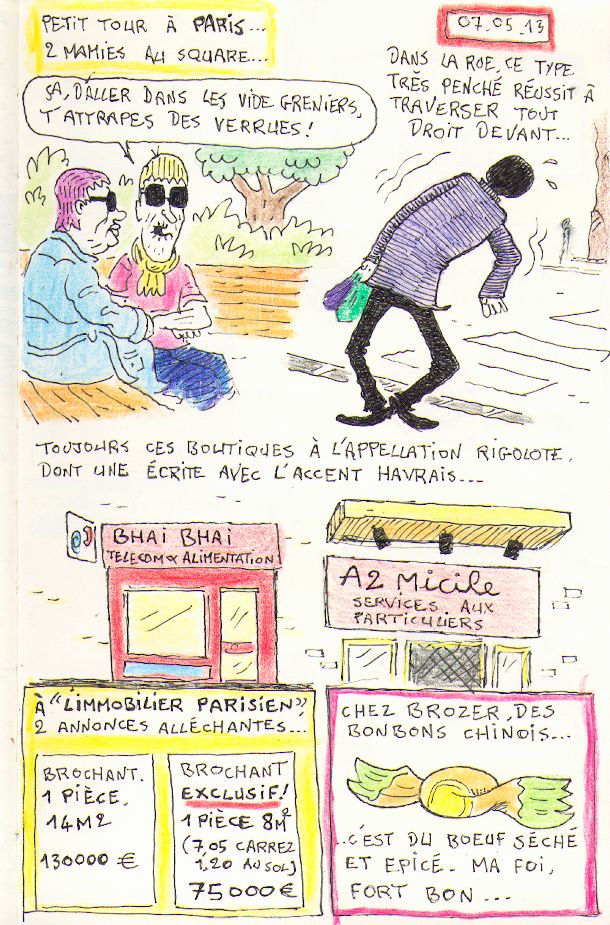 PETIT TOUR À PARIS...
2 MAMIES AU SQUARE...
ÇA, D'ALLER DANS LES VIDE GRENIERS,
T'ATTRAPES DES VERRUES!
07_05_13
DANS LA RUE, CE TYPE
TRÈS PENCHÉ RÉUSSIT À
TRAVERSER TOUT
DROIT DEVANT...
TOUJOURS CES BOUTIQUES À L'APPELLATION RIGOLOTE,
DONT UNE ÉCRITE AVEC L'ACCENT HAVRAIS...
BHAI BHAI
TELECOM & ALIMENTATION
A2 Micile
SERVICES AUX
PARTICULIERS
À "L'IMMOBILIER PARISIEN",
2 ANNONCES ALLÉCHANTES...
BROCHANT.
1 PIÈCE,
14M2
130000 €
BROCHANT
EXCLUSIF!
1 PIÈCE 8M²
(7,05 CARREZ
1,20 AU SOL)
75000 €
CHEZ BROZER, DES
BONBONS CHINOIS...
...C'EST DU BOEUF SÉCHÉ
ET EPICÉ. MA FOI,
FORT BON...